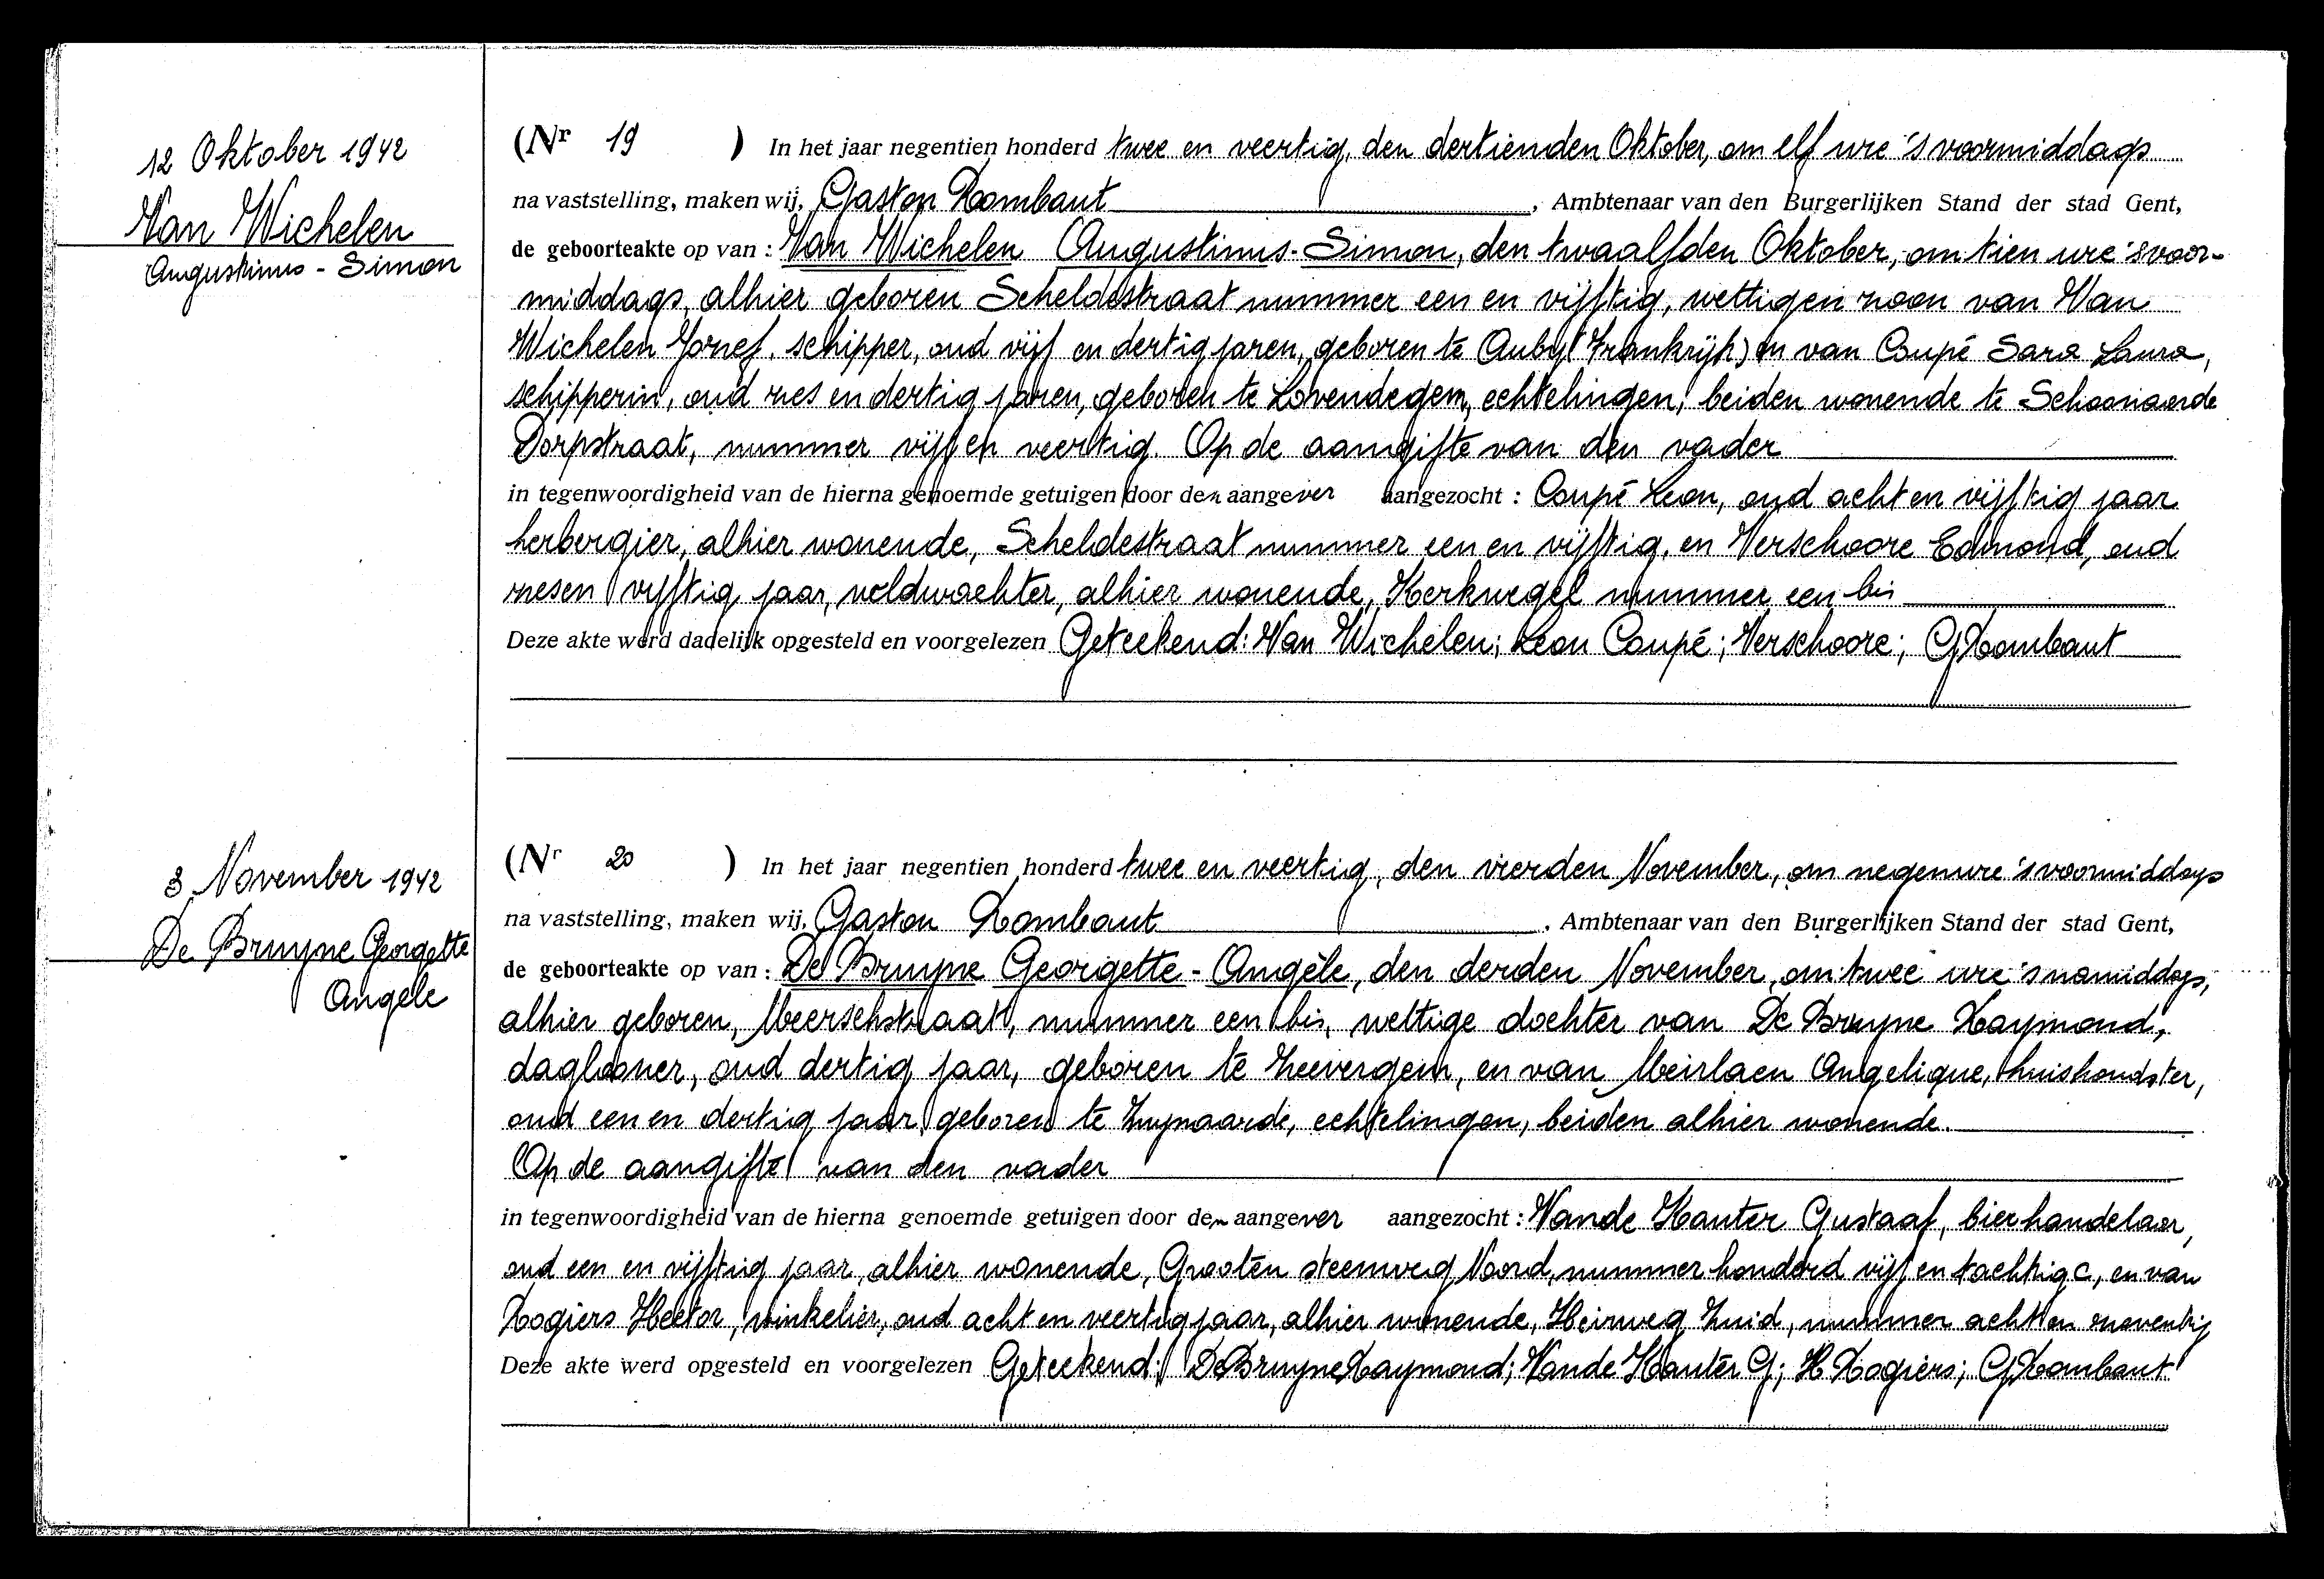 12 Oktober 1942
Van Wichelen
Augustinus - Simon
(Nr 19 ) In het jaar negentien honderd twee en veertig, den dertienden Oktober, om elf ure 's voormiddags
na vaststelling, maken wij, Gaston Rombaut, Ambtenaar van den Burgerlijken Stand der stad Gent,
de geboorteakte op van : Van Wichelen Augustinus-Simon, den twaalfden Oktober, om tien ure 's voor-
middags, alhier geboren Scheldestraat nummer een en vijftig, wettigen zoon van Van
Wichelen Jozef, schipper, oud vijf en dertig jaren, geboren te Auby (Frankrijk) en van Coupé Sara Laura,
schipperin, oud zes en dertig jaren, geboren te Lovendegem, echtelingen, beiden wonende te Schoonaarde
Dorpstraat, nummer vijf en veertig. Op de aangifte van den vader
in tegenwoordigheid van de hierna genoemde getuigen door den aangever aangezocht : Coupé Leon, oud acht en vijftig jaar
herbergier, alhier wonende, Scheldestraat nummer een en vijftig, en Verschoore Edmond, oud
zes en vijftig jaar, veldwachter, alhier wonende, Kerkwegel nummer een bis
Deze akte werd dadelijk opgesteld en voorgelezen Geteekend: Van Wichelen; Leon Coupé; Verschoore; G Rombaut
3 November 1942
De Bruyne Georgette
Angele
(Nr 20 ) In het jaar negentien honderd twee en veertig, den vierden November, om negen ure 's voormiddags
na vaststelling, maken wij, Gaston Rombaut, Ambtenaar van den Burgerlijken Stand der stad Gent,
de geboorteakte op van : De Bruyne Georgette - Angèle, den derden November, om twee ure 's namiddags,
alhier geboren, Meerschstraat, nummer een bis, wettige dochter van De Bruyne Raymond,
daglooner, oud dertig jaar, geboren te Zeevergem, en van Meirlaen Angelique, huishoudster,
oud een en dertig jaar, geboren te Zwynaarde, echtelingen, beiden alhier wonende.
Op de aangifte van den vader
in tegenwoordigheid van de hierna genoemde getuigen door den aangever aangezocht : Van de Kanter Gustaaf, bierhandelaar,
oud een en vijftig jaar, alhier wonende, Grooten steenweg Noord, nummer honderd vijf en tachtig c, en van
Rogiers Hector, winkelier, oud acht en veertig jaar, alhier wonende, Heirweg Zuid, nummer acht en zeventig
Deze akte werd opgesteld en voorgelezen Geteekend: De Bruyne Raymond; Van de Kanter G; H Rogiers; G Rombaut